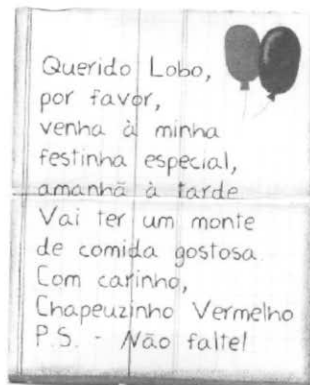 Querido Lobo,
por favor,
venha à minha
festinha especial,
amanhã à tarde
Vai ter um monte
de comida gostosa.
Com carinho,
Chapeuzinho Vermelho
P.S. - Não falte!